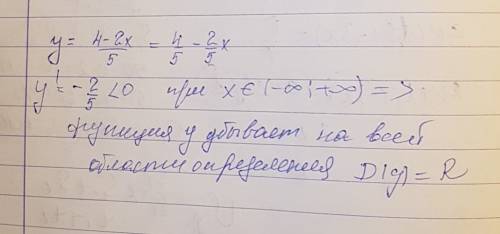 y = (4-2x)/5 = 4/5 - 2/5 x
y' = -2/5 < 0 при x ∈ (-∞; +∞) =>
функция y убывает на всей
области определения D(y) = R